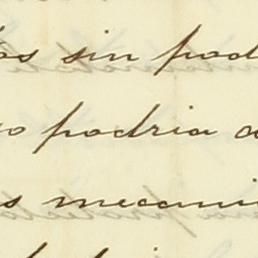 los sin pod
o podria a
s mecani